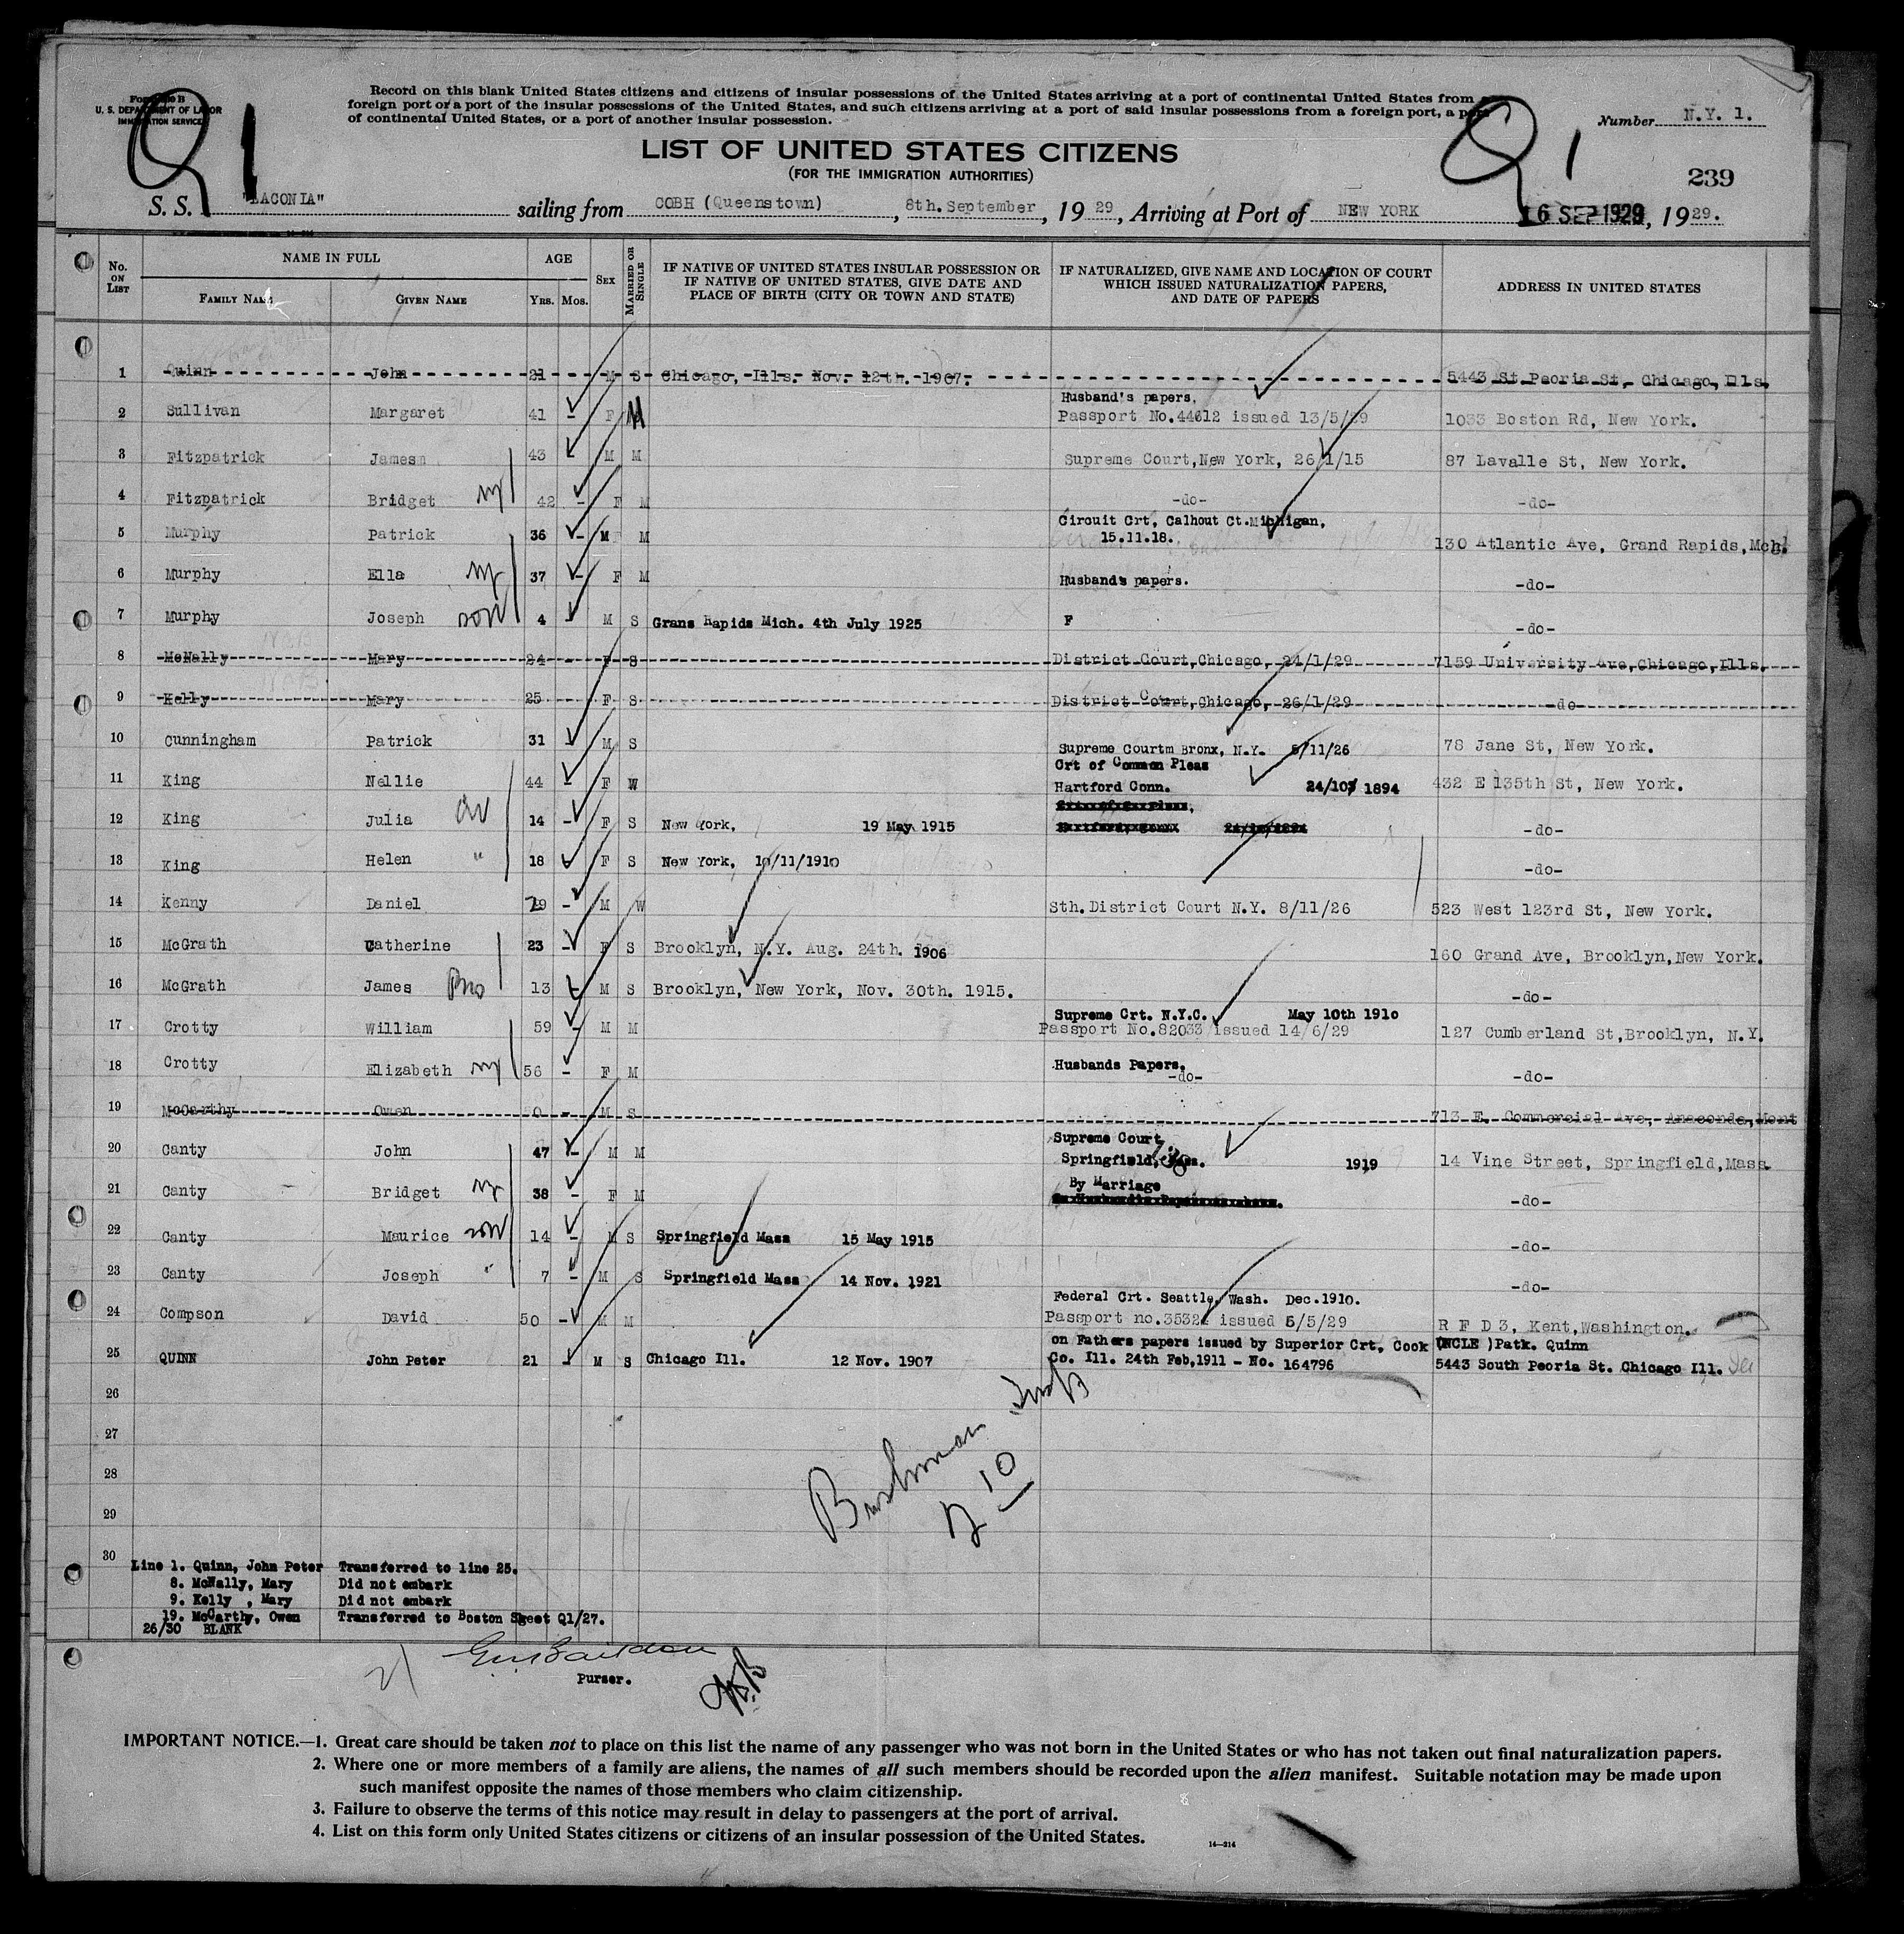 Form 630 B
U. S. DEPARTMENT OF LABOR
IMMIGRATION SERVICE
Record on this blank United States citizens and citizens of insular possessions of the United States arriving at a port of continental United States from a
foreign port or a port of the insular possessions of the United States, and such citizens arriving at a port of said insular possessions from a foreign port, a port
of continental United States, or a port of another insular possession.
Q 1
Q 1
Number N.Y. 1.
LIST OF UNITED STATES CITIZENS
(FOR THE IMMIGRATION AUTHORITIES)
239
S. S. "LACONIA" sailing from COBH (Queenstown), 8th. September, 19 29, Arriving at Port of NEW YORK 16 SEP 1929, 19 29.
No. ON LIST NAME IN FULL AGE SEX MARRIED OR SINGLE IF NATIVE OF UNITED STATES INSULAR POSSESSION OR IF NATIVE OF UNITED STATES, GIVE DATE AND PLACE OF BIRTH (CITY OR TOWN AND STATE) IF NATURALIZED, GIVE NAME AND LOCATION OF COURT WHICH ISSUED NATURALIZATION PAPERS, AND DATE OF PAPERS ADDRESS IN UNITED STATES
FAMILY NAME GIVEN NAME YRS. MOS.
1 Quinn John 21 M S Chicago, Ills. Nov. 12th. 1907. 5443 St Peoria St, Chicago, Ills.
Husband's papers.
2 Sullivan Margaret 41 - F M Passport No.44612 issued 13/5/29 1033 Boston Rd, New York.
3 Fitzpatrick Jamesm 43 - M M Supreme Court, New York, 26/1/15 87 Lavalle St, New York.
4 Fitzpatrick Bridget 42 - F M -do- -do-
Circuit Crt, Calhout Ct. Michigan,
5 Murphy Patrick 36 - M M 15.11.18. 130 Atlantic Ave, Grand Rapids, Mch.
6 Murphy Ella 37 - F M Husbands papers. -do-
7 Murphy Joseph son 4 - M S Grans Rapids Mich. 4th July 1925 F -do-
8 McNally Mary 24 - F S District Court, Chicago, 24/1/29 7159 University Ave, Chicago, Ills.
9 Kelly Mary 25 F S District Court, Chicago, 26/1/29 do
10 Cunningham Patrick 31 - M S Supreme Courtm Bronx, N.Y. 5/11/26 78 Jane St, New York.
Crt of Common Pleas
11 King Nellie 44 - F W Hartford Conn. 24/10/ 1894 432 E 135th St, New York.
12 King Julia 14 - F S New York, 19 May 1915 -do-
13 King Helen " 18 - F S New York, 10/11/1910 -do-
14 Kenny Daniel 29 - M W Sth. District Court N.Y. 8/11/26 523 West 123rd St, New York.
15 McGrath Catherine 23 - F S Brooklyn, N.Y. Aug. 24th. 1906 160 Grand Ave, Brooklyn, New York.
16 McGrath James Bro 13 - M S Brooklyn, New York, Nov. 30th. 1915. -do-
Supreme Crt. N.Y.C. May 10th 1910
17 Crotty William 59 - M M Passport No.82033 issued 14/6/29 127 Cumberland St, Brooklyn, N.Y.
Husbands Papers.
18 Crotty Elizabeth 56 - F M -do- -do-
19 McCarthy Owen 0 - M S 713 E. Commercial Ave, Anaconda, Mont
Supreme Court,
20 Canty John 47 - M M Springfield, Mass. 1919 14 Vine Street, Springfield, Mass.
21 Canty Bridget 38 - F M By Marriage -do-
22 Canty Maurice son 14 - M S Springfield Mass 15 May 1915 -do-
23 Canty Joseph " 7 - M S Springfield Mass 14 Nov. 1921 -do-
Federal Crt. Seattle, Wash. Dec.1910.
24 Compson David 50 - M M Passport no. issued 5/5/29 R F D 3, Kent, Washington.
on Fathers papers issued by Superior Crt, Cook (UNCLE )Patk. Quinn
25 QUINN John Peter 21 - M S Chicago Ill. 12 Nov. 1907 Co. Ill. 24th Feb, 1911 - No. 164796 5443 South Peoria St. Chicago Ill.
26
27
28
29
30
Line 1. Quinn, John Peter Transferred to line 25.
8. McNally, Mary Did not embark
9. Kelly , Mary Did not embark
19. McCarthy, Owen Transferred to Boston Sheet Q1/27.
26/30 BLANK
Purser.
IMPORTANT NOTICE.—1. Great care should be taken not to place on this list the name of any passenger who was not born in the United States or who has not taken out final naturalization papers.
2. Where one or more members of a family are aliens, the names of all such members should be recorded upon the alien manifest. Suitable notation may be made upon
such manifest opposite the names of those members who claim citizenship.
3. Failure to observe the terms of this notice may result in delay to passengers at the port of arrival.
4. List on this form only United States citizens or citizens of an insular possession of the United States.
14—214